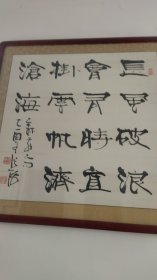 長風破浪
會有時直
掛雲帆濟
滄海
乙酉